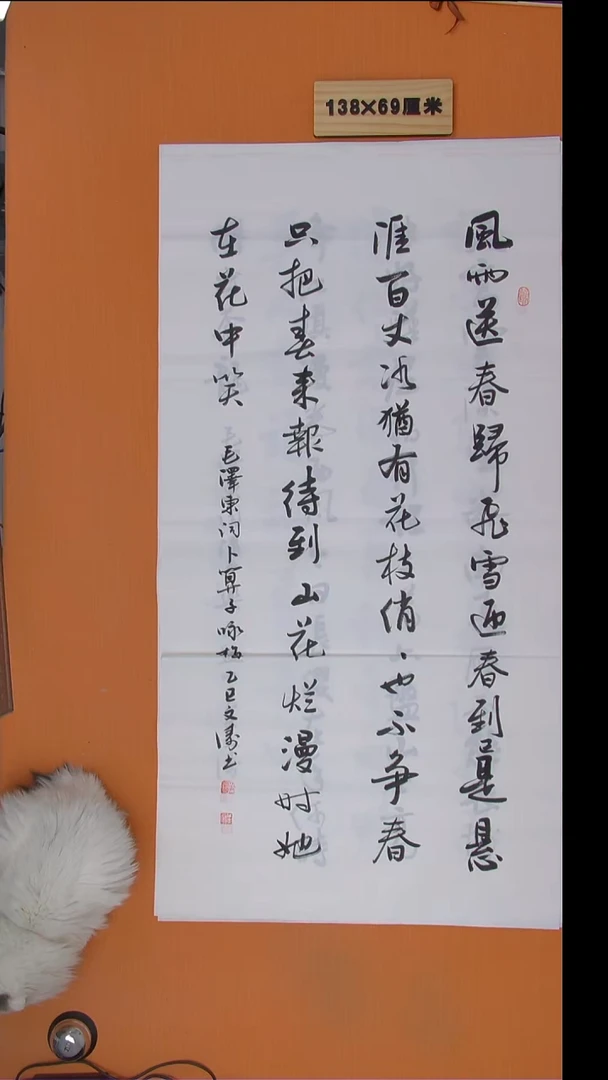 138×69厘米
風雨送春歸飛雪迎春到已是悬
涯百丈冰猶有花枝俏、也不争春
只把春来報待到山花烂漫时她
在花中笑 毛澤東词卜算子咏梅乙巳文濤书